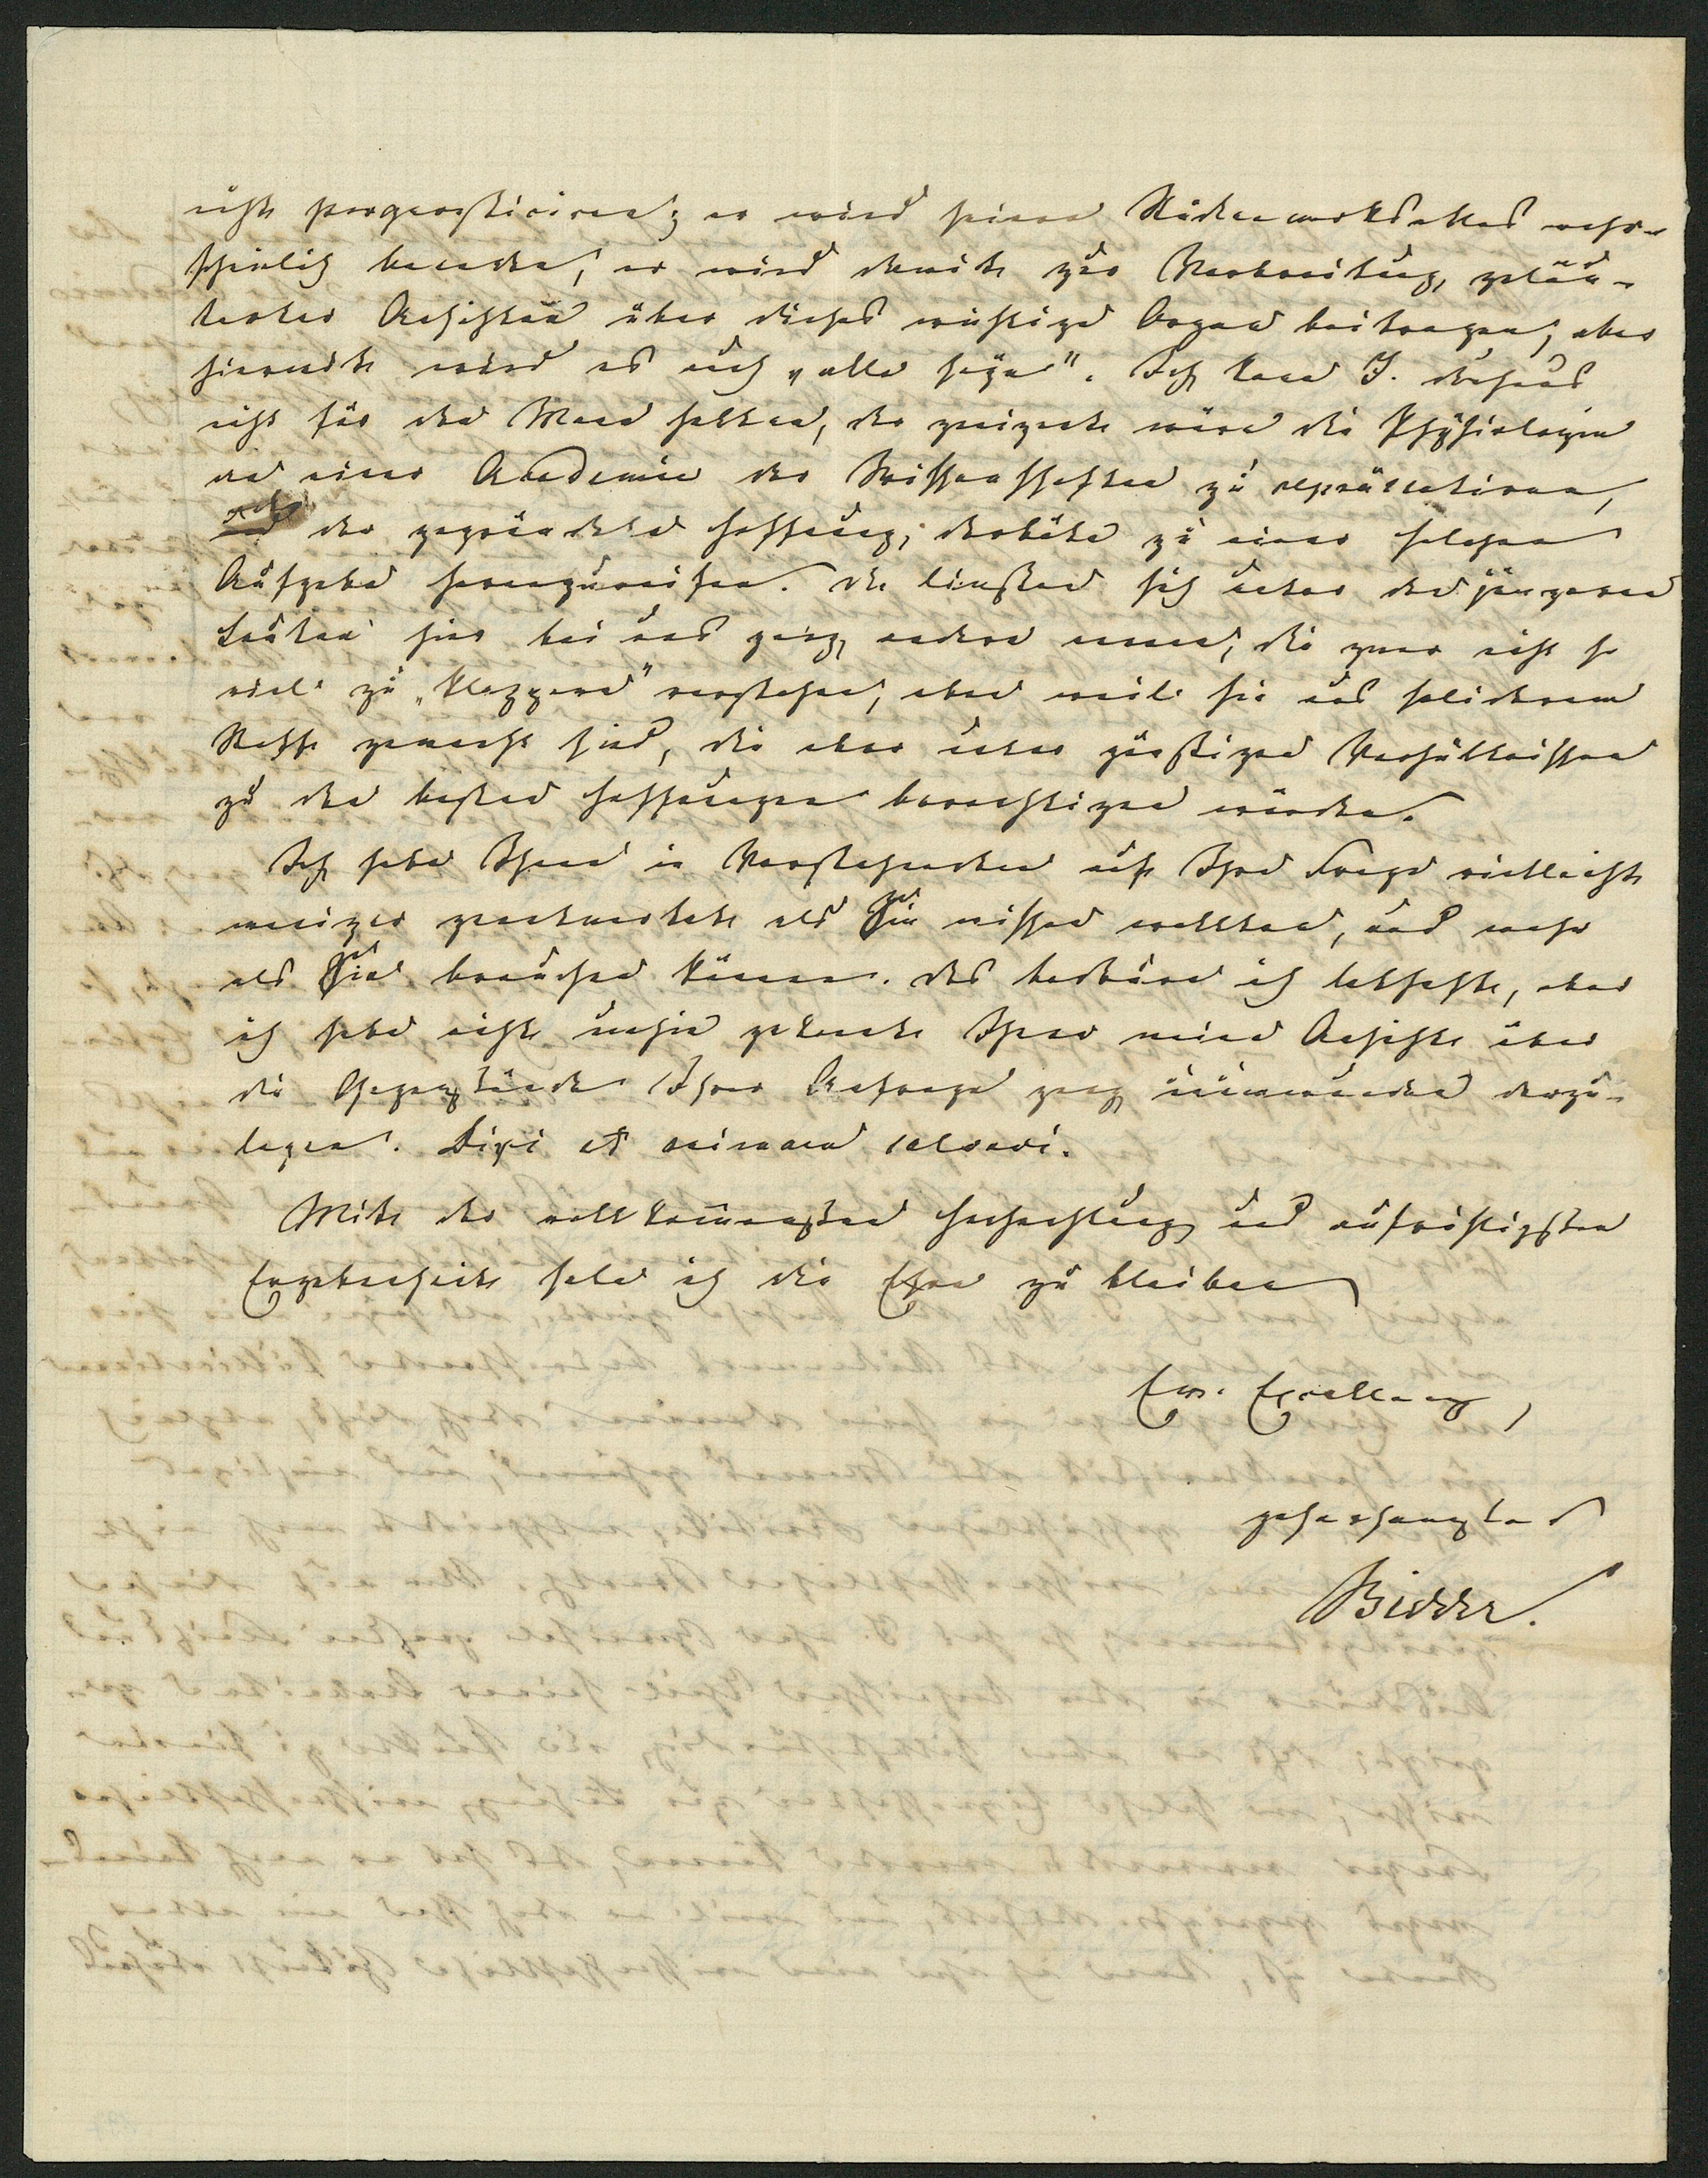 nicht prognosticiren; er wird seinen Rückenmarksatlas wahr-
scheinlich beenden, er wird damit zur Verbreitung geläu-
terter Ansichten über dieses wichtige Organ beitragen, aber
hiermit wird es auch „alle seyn". Ich kann J. durchaus
nicht für den Mann halten, der geeignet wäre die Physiologie
an einer Academie der Wissenschaften zu repräsentiren,
oder der gegründete Hoffnung, derbute zu einer solchen
Aufgabe heranzureifen. Da liessen sich unter den jüngeren
Leuten hier bei uns ganz andere nennen, die zwar nicht so
viel zu „klappern" verstehen, eben weil sie aus soliderem
Stoffe gemacht sind, die aber unter günstigen Verhältnissen
zu den besten Hoffnungen berechtigen würden.
Ich habe Ihnen in Vorstehendem auf Ihre Frage vielleicht
weniger geantwortet als Sie wissen wollten, und mehr
als Sie brauchen können. Das bedaure ich lebhaft, aber
ich habe nicht umhin gekonnt Ihnen meine Ansicht über
die Gegenstände Ihrer Anfrage ganz unumwunden darzu-
legen. Dixi et animam salvavi.
Mit der vollkommensten Hochachtung und aufrichtigsten
Ergebenheit habe ich die Ehre zu bleiben
Ew. Excellenz,
gehorsamster
Bidder.